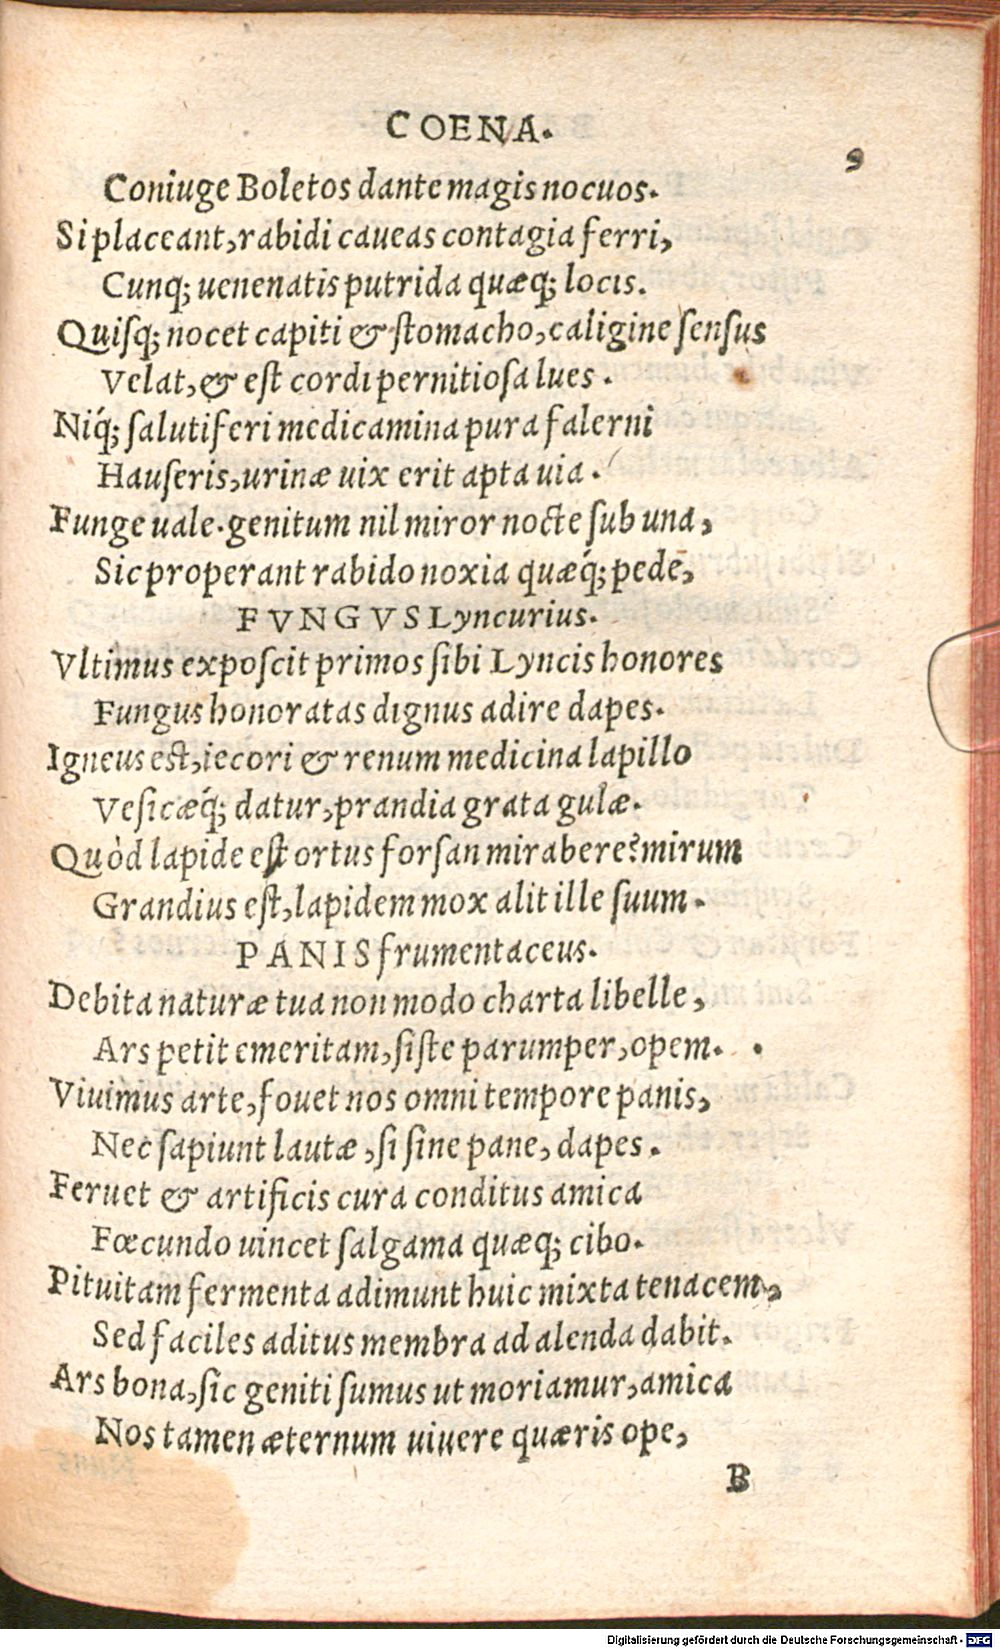 COENA.
9
Coniuge Boletos dante magis nocuos.
Si placeant, rabidi caueas contagia ferri,
Cunq; uenenatis putrida quæq; locis.
Quisq; nocet capiti & stomacho, caligine sensus
Velat, & est cordi pernitiosa lues.
Niq́; salutiferi medicamina pura falerni
Hauseris, urinæ uix erit apta uia.
Funge uale. genitum nil miror nocte sub una,
Sic properant rabido noxia quæq́; pede,
FVNGVS Lyncurius.
Vltimus exposcit primos sibi Lyncis honores
Fungus honoratas dignus adire dapes.
Igneus est, iecori & renum medicina lapillo
Vesicæq́; datur, prandia grata gulæ.
Quòd lapide est ortus forsan mirabere? mirum
Grandius est, lapidem mox alit ille suum.
PANIS frumentaceus.
Debita naturæ tua non modo charta libelle,
Ars petit emeritam, siste parumper, opem.
Viuimus arte, fouet nos omni tempore panis,
Nec sapiunt lautæ, si sine pane, dapes.
Feruet & artificis cura conditus amica
Fœcundo uincet salgama quæq; cibo.
Pituitam fermenta adimunt huic mixta tenacem,
Sed faciles aditus membra ad alenda dabit.
Ars bona, sic geniti sumus ut moriamur, amica
Nos tamen æternum uiuere quæris ope,
B
Digitalisierung gefördert durch die Deutsche Forschungsgemeinschaft - DFG